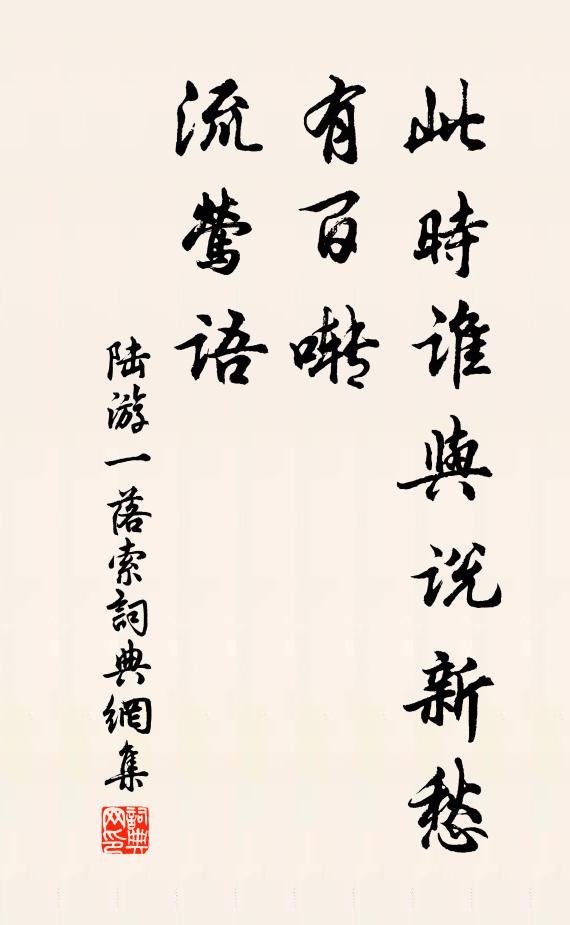 此時誰與説新愁
有百囀
流鶯語
陆游一落索詞典網集
詞典網印